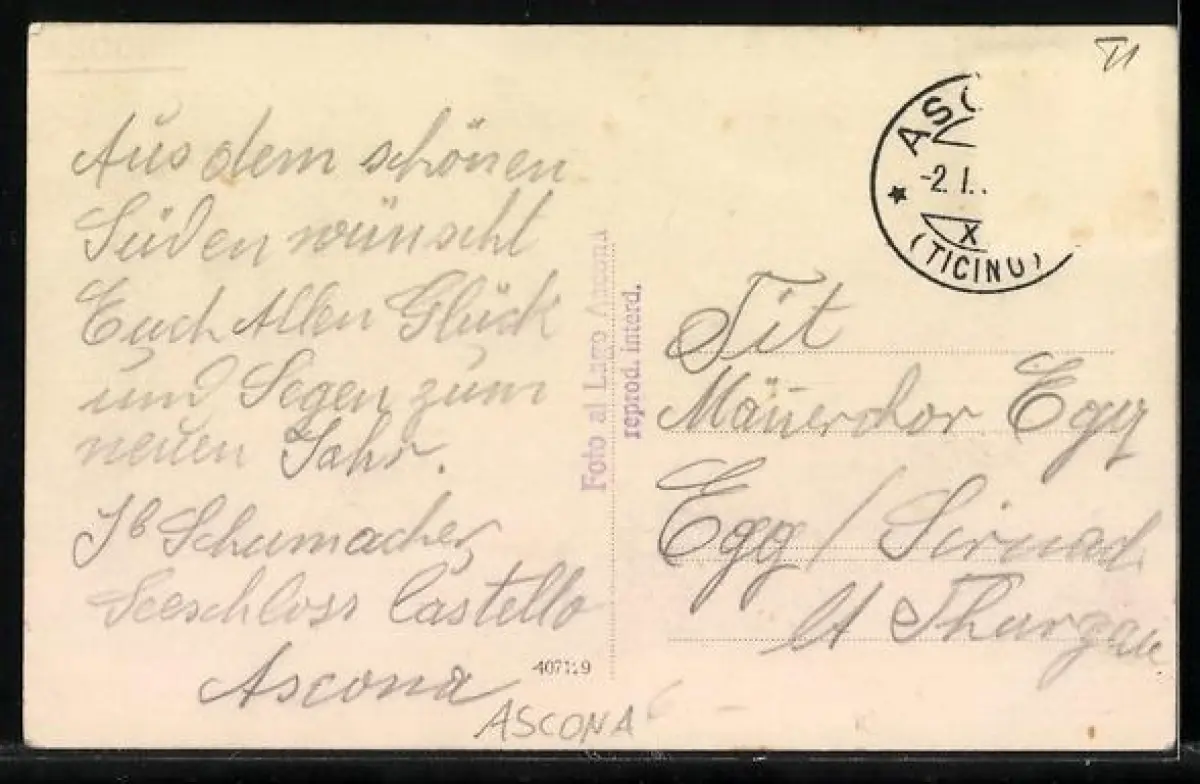 Aus dem schönen
Süden wünscht
Euch Allen Glück
und Segen zum
neuen Jahr.
Jb Schumacher
Seeschloss Castello
Ascona
ASCONA
407119
Foto al Lago Ascona
reprod. interd.
ASC
-2. I.
X
(TICINO)
Tit
Männerchor Egg
Egg / Sirnach
Kt Thurgau